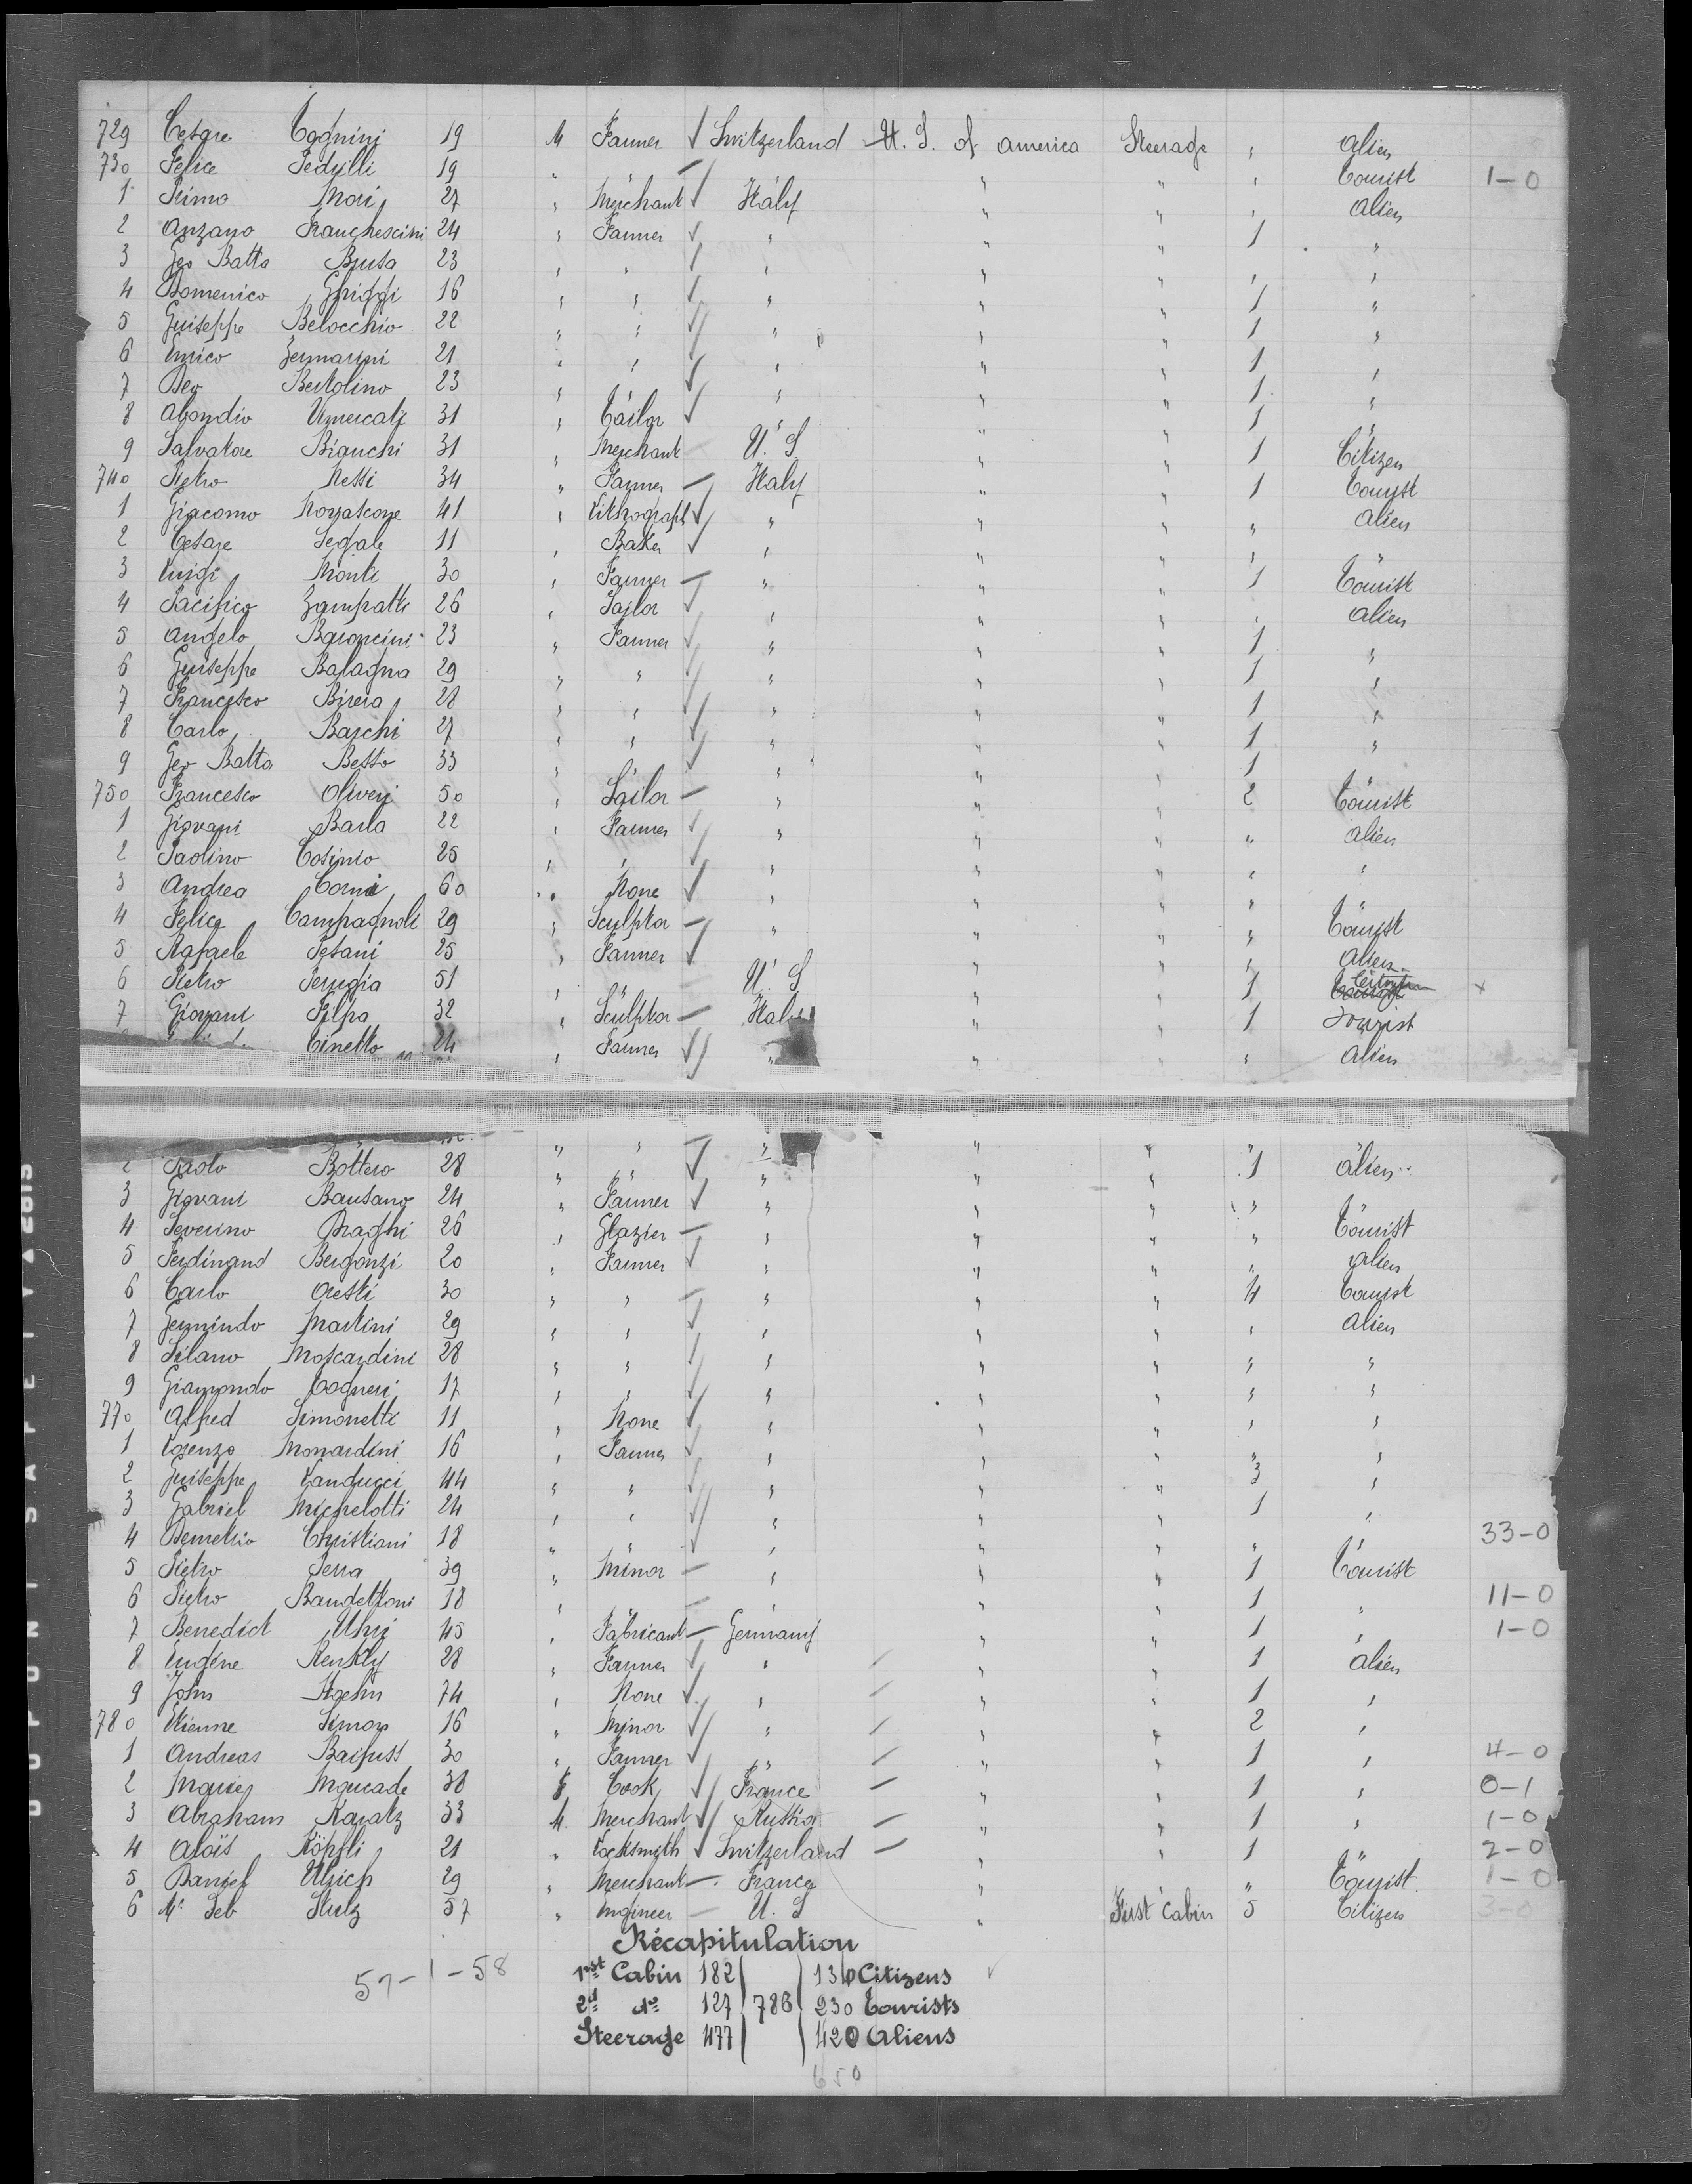 729 Cesare Tognini 19 M Farmer √ Switzerland U. S. of america Steerage " alien
730 Felice Pedrilli 19 " " — " " " " tourist 1-0
1 Primo Mori 27 " Merchant √ Italy " " " alien
2 Anzano Francheschini 24 " Farmer √ " " " 1 "
3 Geo Batta Brusa 23 " " √ " " " " "
4 Domenico Ghiggi 16 " " √ " " " 1 "
5 Guiseppe Belocchio 22 " " √ " " " 1 "
6 Enrico Germarini 21 " " √ " " " 1 "
7 Deo Bertolino 23 " " √ " " " 1 "
8 Abondio Vimercati 31 " Tailor √ " " " 1 "
9 Salvatore Bianchi 31 " Merchant U. S " " 1 Citizen
740 Pietro Nessi 34 " Farmer — Italy " " 1 Tourist
1 Giacomo 41 " Lithograph √ " " " " alien
2 Cesare Segale 11 " Baker √ " " " " "
3 Luigi Monti 30 " Farmer — " " " 1 Tourist
4 Pacifico Zampatti 26 " Sailor √ " " " " alien
5 Angelo Baroncini 23 " Farmer √ " " " 1 "
6 Guiseppe Balagna 29 " " √ " " " 1 "
7 Francesco Birera 28 " " √ " " " 1 "
8 Carlo Barchi 27 " " √ " " " 1 "
9 Geo Batta Besso 33 " " √ " " " 1 "
750 Francesco Oliveri 50 " Sailor — " " " 2 Tourist
1 Giovani Barla 22 " Farmer √ " " " " alien
2 Paolino Cosinio 25 " " √ " " " " "
3 Andrea Corni 60 " None √ " " " " "
4 Felice Campagnoli 29 " Sculptor — " " " " Tourist
5 Rafaele Pesani 25 " Farmer √ " " " " Alien
6 Pietro Perugia 51 " " U. S " " 1 Citizen x
7 Giovani Filpa 32 " Sculptor — Italy " " 1 Tourist
Cinetto 24 " Farmer √ " " " " alien
2 Paolo Bottero 28 " " √ " " " 1 alien
3 Giovani Bausano 24 " Farmer √ " " " " "
4 Severino Draghi 26 " Glazier — " " " " Tourist
5 Ferdinand Bergonzi 20 " Farmer √ " " " " alien
6 Carlo Oresti 30 " " — " " " 4 Tourist
7 Germindo Martini 29 " " √ " " " " Alien
8 Silano Moscardini 28 " " √ " " " " "
9 Giamondo Cogneri 17 " " √ " " " " "
770 Alfred Simonetti 11 " None √ " " " " "
1 Lorenzo Monardini 16 " Farmer √ " " " " "
2 Guiseppe Landucci 44 " " √ " " " 3 "
3 Gabriel Michelotti 24 " " √ " " " 1 "
4 Demetrio Christiani 18 " " √ " " " " " 33-0
5 Pietro Serra 39 " Minor — " " " 1 Tourist
6 Pietro Bandettoni 18 " " — " " " 1 " 11-0
7 Benedict Uhri 45 " Fabricant — Germany " " 1 " 1-0
8 Eugène Renkly 28 " Farmer √ " " " 1 alien
9 John Hoehn 74 " None √ " " " 1 "
780 Etienne Simon 16 " Minor √ " " " 2 "
1 Andreas Baifuss 30 " Farmer √ " " " 1 " 4-0
2 Marie Moucade 38 F Cook √ France " " 1 " 0-1
3 Abraham Karatz 33 M. Merchant √ Russia " " 1 " 1-0
4 Aloïs Köpfli 21 " Locksmith √ Switzerland " " 1 " 2-0
5 Daniel Ulrich 29 " Merchant — France " " " Tourist 1-0
6 Mr Seb Stutz 57 " Engineer — U. S " First Cabin 5 Citizen 3-0
Récapitulation
57-1-58 1rst Cabin 182 136 Citizens √
2d do 127 786 230 Tourists
Steerage 477 420 Aliens
650